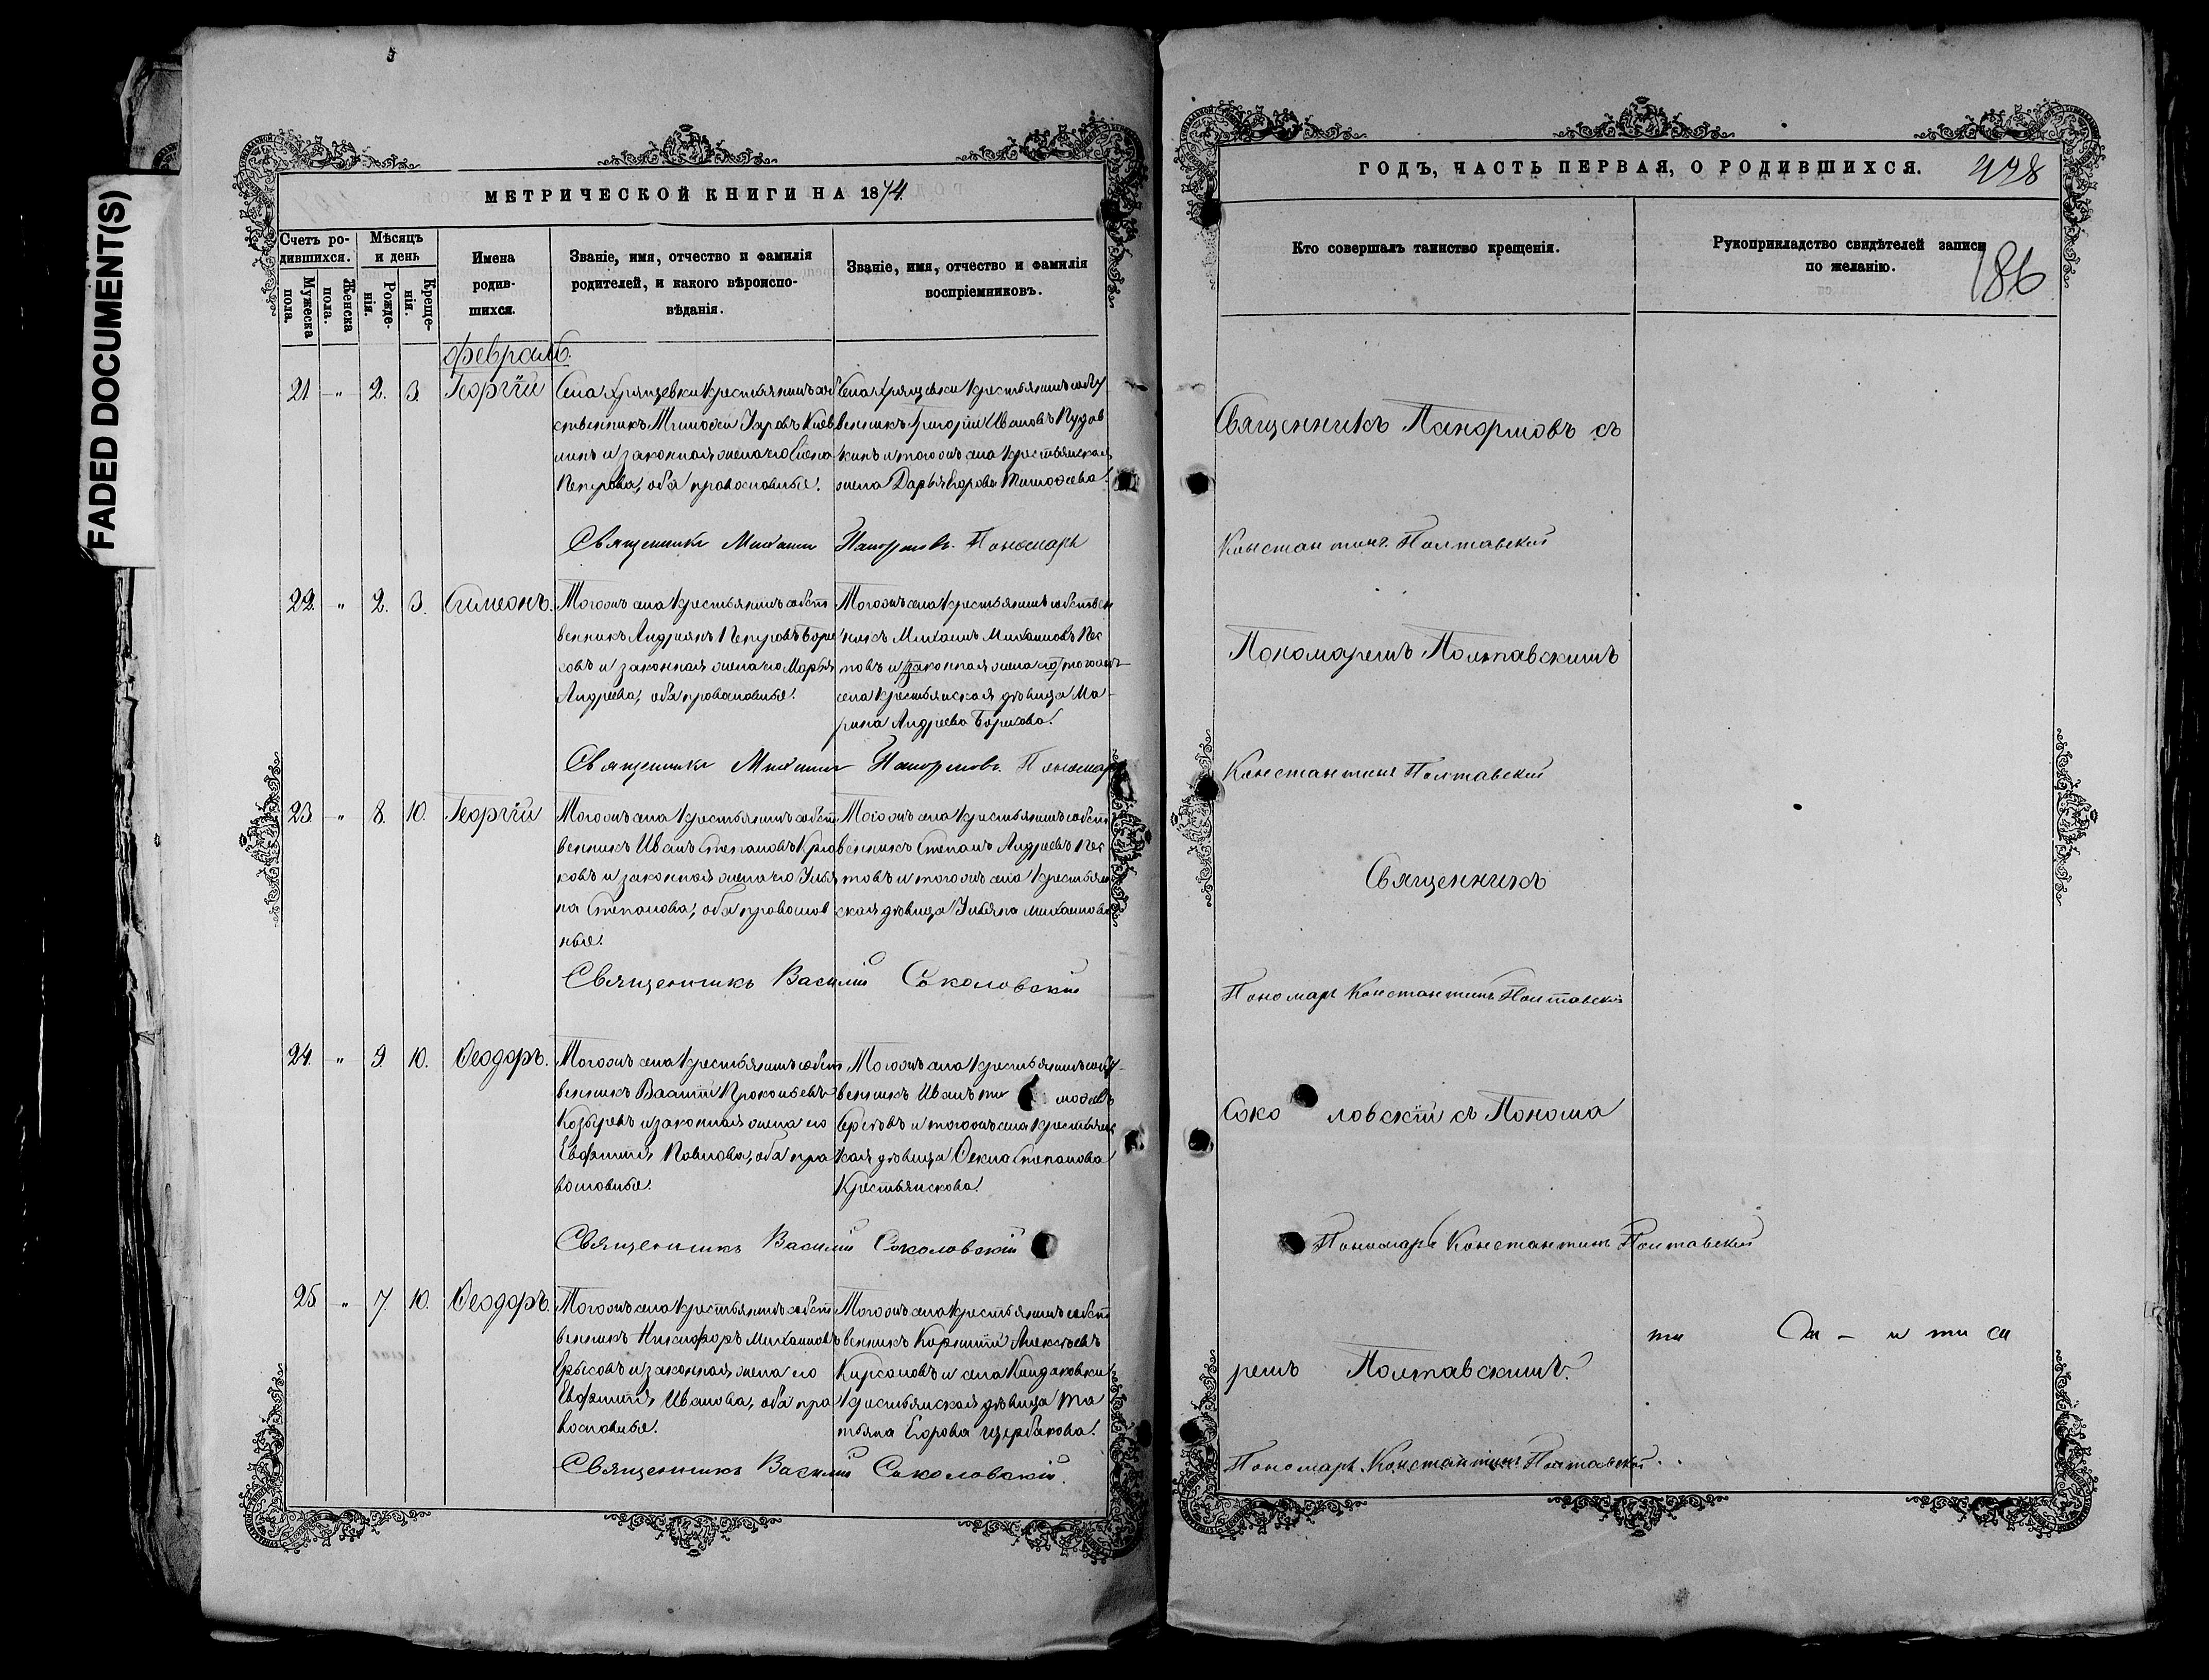 FADED DOCUMENT(S)
МЕТРИЧЕСКОЙ КНИГИ НА 1874.
Счетъ ро-
дившихся.
Мужеска
пола.
Женска
пола.
Мѣсяцъ
и день
Рожде-
нія.
Креще-
нія.
Имена
родив-
шихся.
Званіе, имя, отчество и фамилія
родителей, и какого вѣроиспо-
вѣданія.
Званіе, имя, отчество и фамилія
воспріемниковъ.
февраль.
21 " 2. 3. Георгій
Села Хрящевки крестьянинъ соб
ственникъ Тимофей
и законная жена его
Петрова, оба православные.
Села Хрящевки крестьянинъ собст
венникъ Григорій Ивановъ
и тогожъ села крестьянская
жена Дарья Егорова Тимофеева.
Священникъ Михаилъ Панормовъ. Пономарь
22. " 2. 3. Симеонъ.
Тогожъ села крестьянинъ собст
венникъ Андріянъ Петровъ Бори
совъ и законная жена его Марья
Андреева, оба православные.
Тогожъ села крестьянинъ собствен
никъ Михаилъ Михаиловъ Пес
товъ и законная жена его тогожъ
села крестьянская дѣвица Ма-
рина Андреева Борисова.
Священникъ Михаилъ Панормовъ. Пономарь
23. " 8. 10. Георгій
Тогожъ села крестьянинъ собст
венникъ Иванъ Степановъ Крю
ковъ и законная жена его Улья
на Степанова, оба православ
ные.
Тогожъ села крестьянинъ собст
венникъ Степанъ Андреевъ Пес
товъ и тогожъ села крестьян
ская дѣвица Ульяна Михаилова
Священникъ Василій Соколовскій
24. " 9. 10. Ѳеодоръ.
Тогожъ села крестьянинъ собст
венникъ Прокопьевъ
Козыревъ и законная жена его
Евфимія Павлова, оба пра
вославные.
Тогожъ села крестьянинъ собст-
венникъ Иванъ Ти мофеевъ
и тогожъ села крестьянс
кая дѣвица Ѳекла Степанова
Крестьянскова.
Священникъ Василій Соколовскій
25 " 7 10. Ѳеодоръ.
Тогожъ села крестьянинъ собст
венникъ Никифоръ Михаиловъ
и законная жена его
Евфимія Иванова, оба пра
вославные.
Тогожъ села крестьянинъ собст
венникъ Алексѣевъ
Кирсановъ и села Киндяковки
крестьянская дѣвица Та
тьяна Егорова Щербакова.
Священникъ Василій Соколовскій.
ГОДЪ, ЧАСТЬ ПЕРВАЯ, О РОДИВШИХСЯ.
186
Кто совершалъ таинство крещенія.
Рукоприкладство свидѣтелей записи
по желанію.
Священникъ Панормовъ съ
Константинъ Полтавскій
Пономаремъ Полтавскимъ
Константинъ Полтавскій
Священникъ
Пономарь Константинъ Полтавскій
Соко ловскій съ Понома
Пономарь Константинъ Полтавскій
ремъ Полтавскимъ.
Пономарь Константинъ Полтавскій.